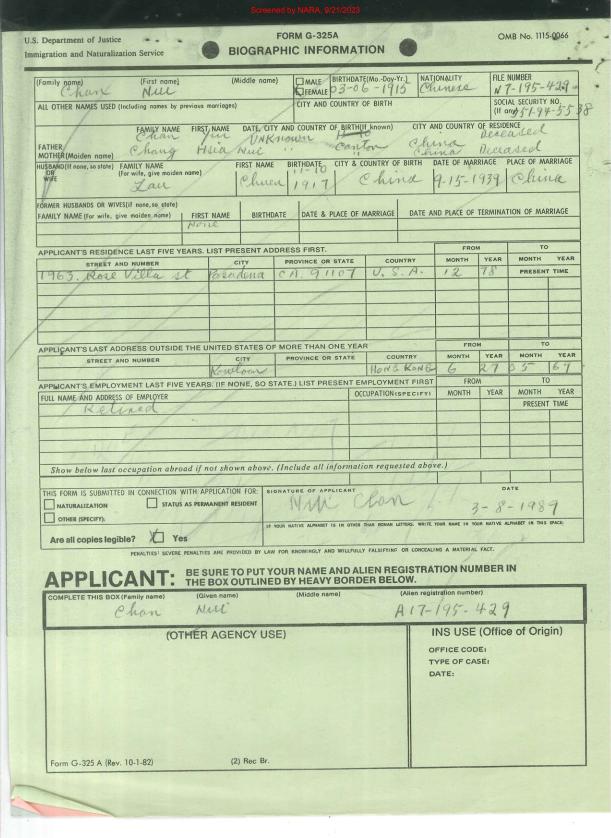 Screened by NARA, 9/21/2023
U.S. Department of Justice
Immigration and Naturalization Service
FORM G-325A
BIOGRAPHIC INFORMATION
OMB No. 1115-0066
(Family name) (First name) (Middle name) MALE FEMALE BIRTHDATE(Mo.-Day-Yr.) NATIONALITY FILE NUMBER
Chan Nui 03-06-1915 Chinese 17-195-429
ALL OTHER NAMES USED (Including names by previous marriages) CITY AND COUNTRY OF BIRTH SOCIAL SECURITY NO. (If any)
FAMILY NAME FIRST NAME DATE, CITY AND COUNTRY OF BIRTH(If known) CITY AND COUNTRY OF RESIDENCE
FATHER Chan UNKnown China Deceased
MOTHER(Maiden name) Chang Hsia Nui " Canton China Deceased
HUSBAND(If none, so state) OR WIFE FAMILY NAME (For wife, give maiden name) FIRST NAME BIRTHDATE CITY & COUNTRY OF BIRTH DATE OF MARRIAGE PLACE OF MARRIAGE
Lau Chuen 11-10 1917 China 9-15-1939 China
FORMER HUSBANDS OR WIVES(if none, so state)
FAMILY NAME (For wife, give maiden name) FIRST NAME BIRTHDATE DATE & PLACE OF MARRIAGE DATE AND PLACE OF TERMINATION OF MARRIAGE
None
APPLICANT'S RESIDENCE LAST FIVE YEARS. LIST PRESENT ADDRESS FIRST. FROM TO
STREET AND NUMBER CITY PROVINCE OR STATE COUNTRY MONTH YEAR MONTH YEAR
1963. Rose Villa st Pasadena CA. 91107 U.S.A. 12 78 PRESENT TIME
APPLICANT'S LAST ADDRESS OUTSIDE THE UNITED STATES OF MORE THAN ONE YEAR FROM TO
STREET AND NUMBER CITY PROVINCE OR STATE COUNTRY MONTH YEAR MONTH YEAR
Kowloon HONG KONG 6 27 05 67
APPLICANT'S EMPLOYMENT LAST FIVE YEARS. (IF NONE, SO STATE.) LIST PRESENT EMPLOYMENT FIRST FROM TO
FULL NAME AND ADDRESS OF EMPLOYER OCCUPATION(SPECIFY) MONTH YEAR MONTH YEAR
Retired PRESENT TIME
Show below last occupation abroad if not shown above. (Include all information requested above.)
THIS FORM IS SUBMITTED IN CONNECTION WITH APPLICATION FOR: SIGNATURE OF APPLICANT DATE
NATURALIZATION STATUS AS PERMANENT RESIDENT
OTHER (SPECIFY):
Nui Chan 3-8-1989
IF YOUR NATIVE ALPHABET IS IN OTHER THAN ROMAN LETTERS, WRITE YOUR NAME IN YOUR NATIVE ALPHABET IN THIS SPACE:
Are all copies legible? Yes
PENALTIES: SEVERE PENALTIES ARE PROVIDED BY LAW FOR KNOWINGLY AND WILLFULLY FALSIFYING OR CONCEALING A MATERIAL FACT.
APPLICANT: BE SURE TO PUT YOUR NAME AND ALIEN REGISTRATION NUMBER IN
THE BOX OUTLINED BY HEAVY BORDER BELOW.
COMPLETE THIS BOX (Family name) (Given name) (Middle name) (Alien registration number)
Chan Nui A17-195-429
(OTHER AGENCY USE) INS USE (Office of Origin)
OFFICE CODE:
TYPE OF CASE:
DATE:
Form G-325 A (Rev. 10-1-82) (2) Rec Br.